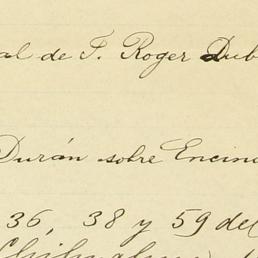 al de F. Roger Dub
Durán sobre Encin
36, 38 y 59 del
Chihuahua